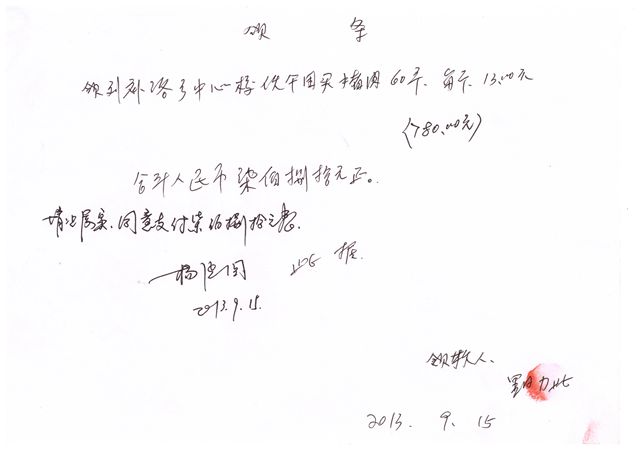 领 条
领到补洛乡中心校伙午用买猪肉60斤、每斤13.00元
(780.00元)
合计人民币柒佰捌拾元正。
情况属实、同意支付柒佰捌拾元整
2013.9.15.
此据
领款人、
2013. 9. 15